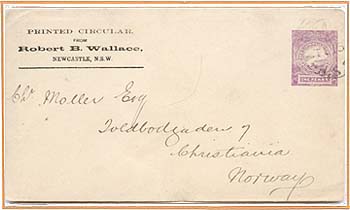 PRINTED CIRCULAR.
FROM
Robert B. Wallace,
NEWCASTLE, N.S.W.
ONE PENNY
Chr Moller Esq
Toldbodgaden 9
Christiania
Norway